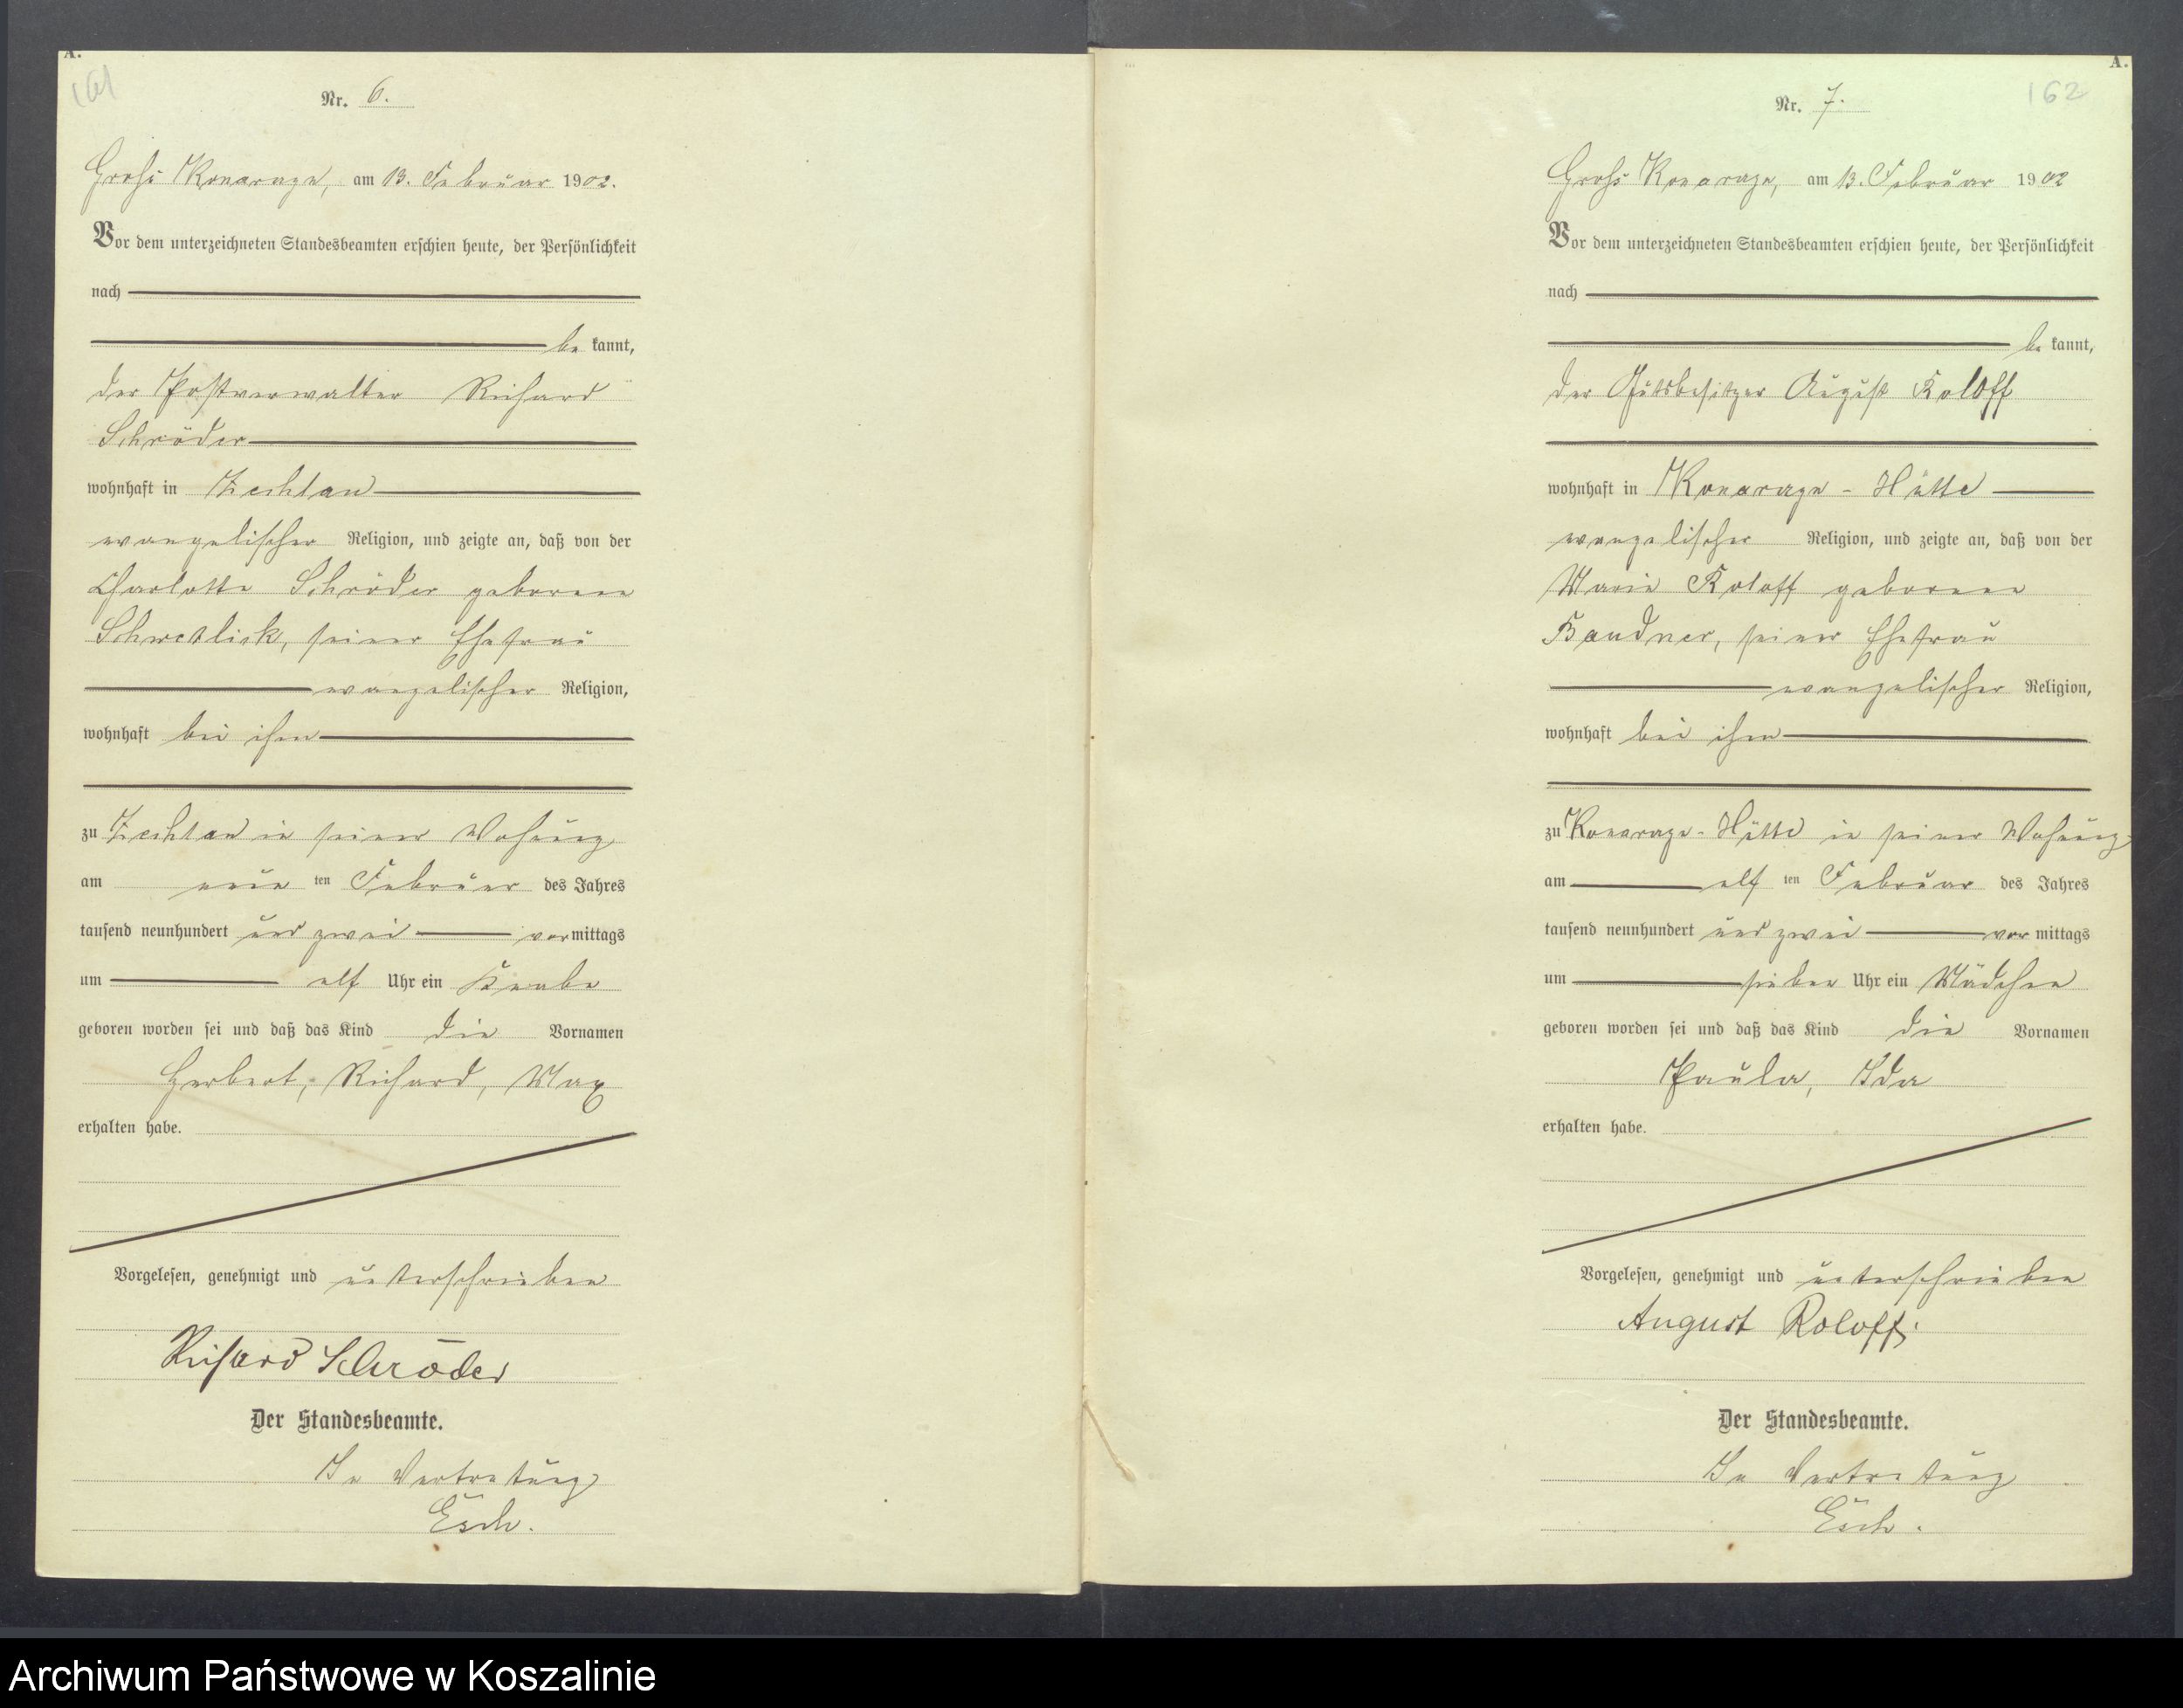 A.
161
Nr. 6.
Groß Konarage, am 13. Februar 1902.
Vor dem unterzeichneten Standesbeamten erschien heute, der Persönlichkeit
nach
be kannt,
der Postverwalter Richard
Schröder
wohnhaft in
evangelischer Religion, und zeigte an, daß von der
Charlotte Schröder geborene
Schwetlick, seiner Ehefrau
evangelischer Religion,
wohnhaft bei ihm
zu in seiner Wohnung
am neun ten Februar des Jahres
tausend neunhundert und zwei vor mittags
um elf Uhr ein Knabe
geboren worden sei und daß das Kind die Vornamen
Herbert, Richard, Max
erhalten habe.
Vorgelesen, genehmigt und unterschrieben
Richard Schröder
Der Standesbeamte.
In Vertretung
Esch.
A.
162
Nr. 7.
Groß Konarage, am 13. Februar 1902
Vor dem unterzeichneten Standesbeamten erschien heute, der Persönlichkeit
nach
be kannt,
der Gutsbesitzer August Roloff
wohnhaft in Konarage-Hütte
evangelischer Religion, und zeigte an, daß von der
Marie Roloff geborene
Bandner, seiner Ehefrau
evangelischer Religion,
wohnhaft bei ihm
zu Konarage-Hütte in seiner Wohnung
am elf ten Februar des Jahres
tausend neunhundert und zwei vor mittags
um sieben Uhr ein Mädchen
geboren worden sei und daß das Kind die Vornamen
Paula, Ida
erhalten habe.
Vorgelesen, genehmigt und unterschrieben
August Roloff.
Der Standesbeamte.
In Vertretung
Esch.
Archiwum Państwowe w Koszalinie